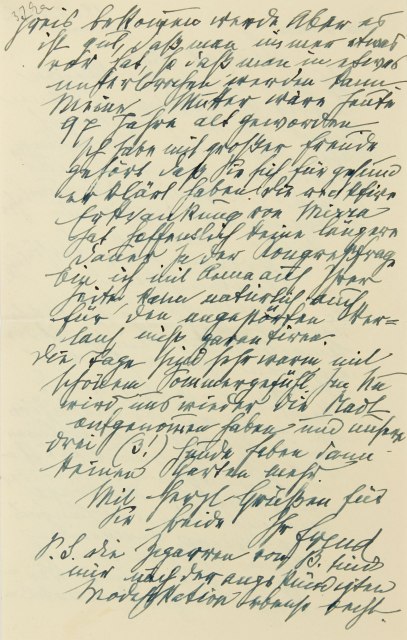 Preis bekommen werde Aber es
ist gut, daß man immer etwas
vor hat, so daß man in etwas
unterbrochen werden kann
Meine Mutter wäre heute
97 Jahre alt geworden
Ich habe mit großer Freude
gehört daß Sie sich für gesund
erklärt haben. die
Erkrankung von
hat hoffentlich keine längere
Dauer In der Kongreßfrage
bin ich mit Roma auf Ihrer
Seite, kann natürlich auch
für den ungestörten Ver-
lauf nicht garantiren.
die Tage sind sehr warm mit
schönem Sommergefühl
wird uns wieder die Stadt
aufgenommen haben und unsere
drei (3!) Hunde haben dann
keinen Garten mehr.
Mit herzl Grüßen für
Sie beide
Ihr Freud
P.S. die Zigarren von B. sind
mir nach der angekündigten
Modifikation ebenso recht.